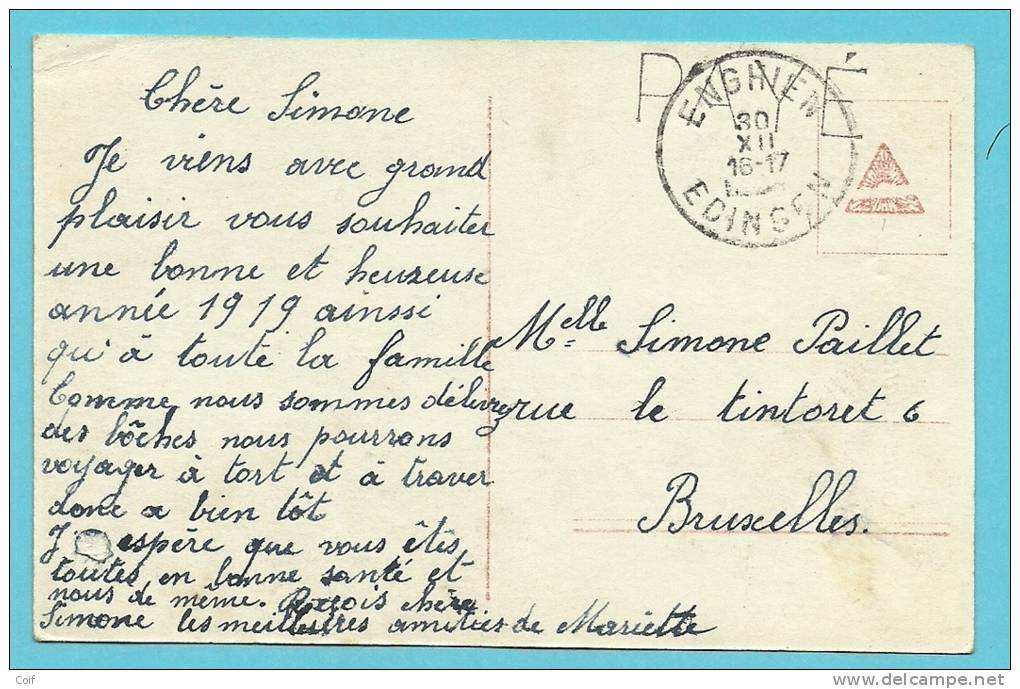 Chère Simone
Je viens avec grand
plaisir vous souhaiter
une bonne et heureuse
année 1919 ainssi
qu'à toute la famille
Comme nous sommes délivrez
des bôches nous pourrons
voyager à tort et à traver
donc a bien tôt
J' espère que vous êtes
toutes en bonne santé et
nous de même. Reçois chère
Simone les meilleures amitiés de Mariette
PAYÉ
ENGHIEN
30
XII
16-17
EDINGEN
Melle Simone Paillet
rue le tintoret 6
Bruxelles.
Coif
delcampe.net